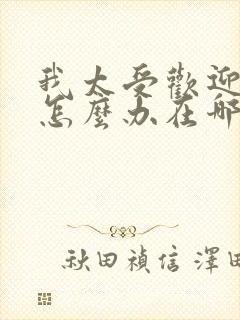 我太受歡迎
怎麼办在哪
秋田禎信 澤田